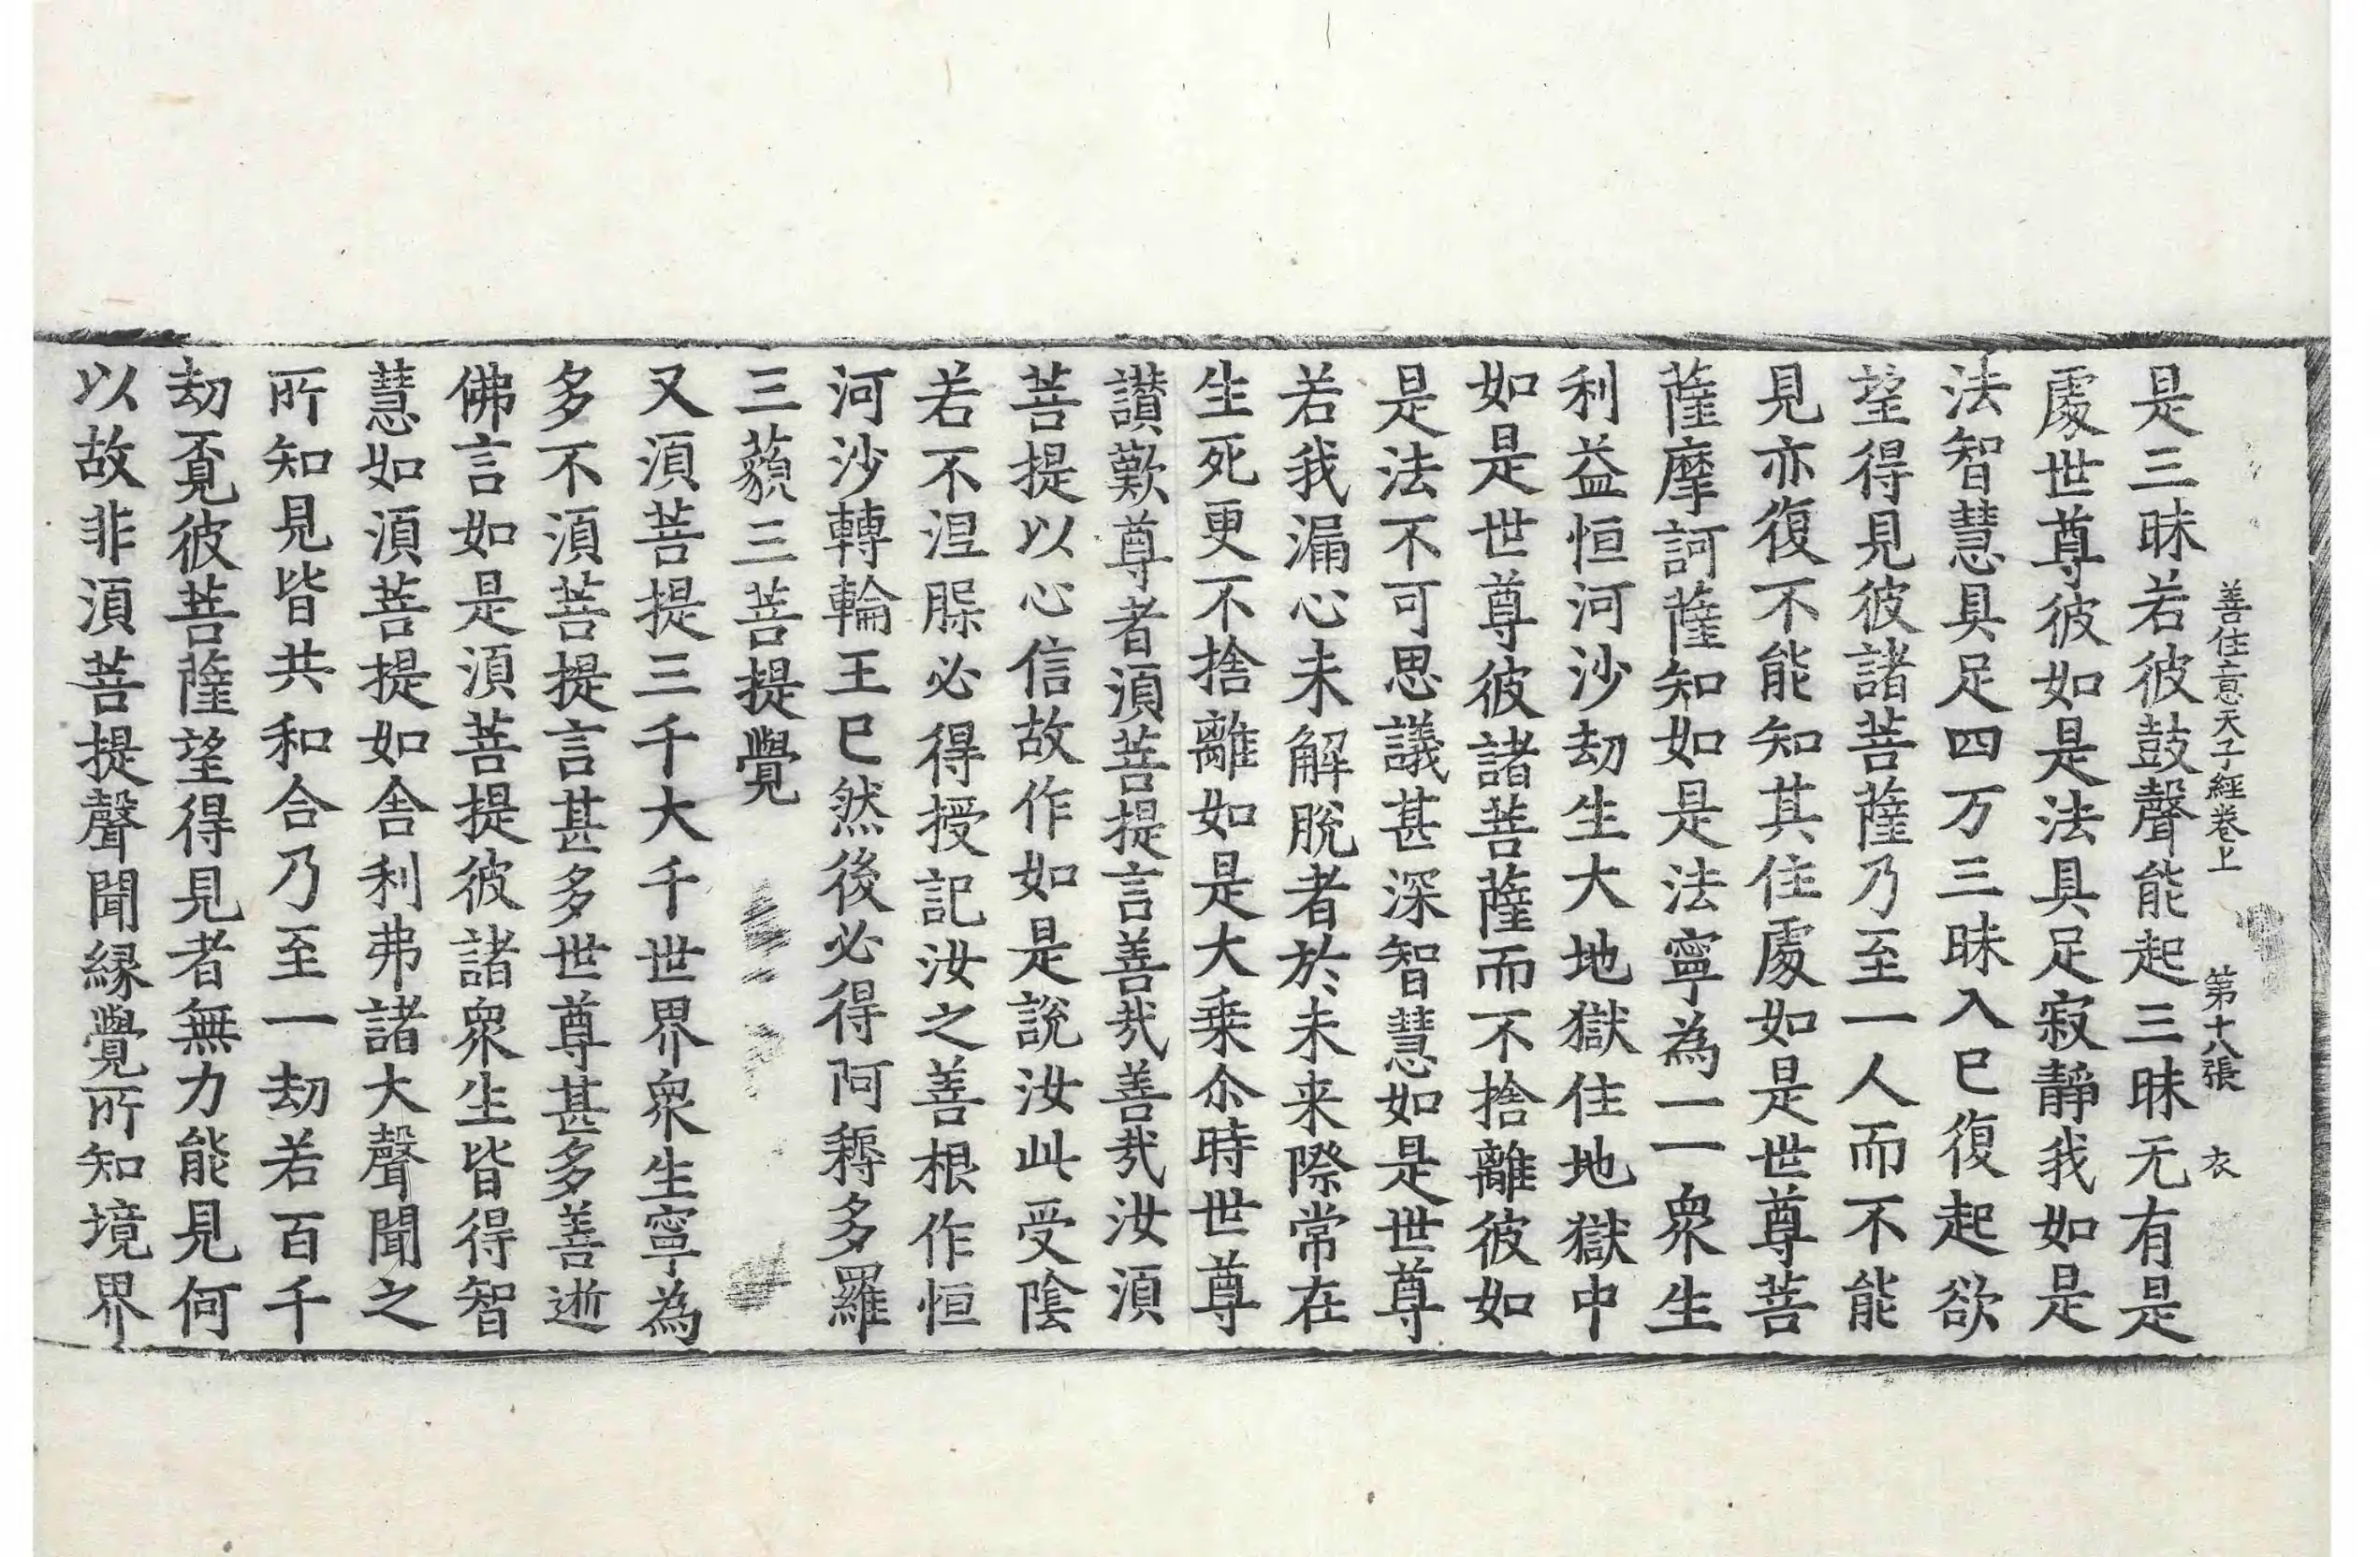 善住意天子經卷上 第十八張 衣
是三昧若彼鼓聲能起三昧无有是
處世尊彼如是法具足寂靜我如是
法智慧具足四万三昧入已復起欲
望得見彼諸菩薩乃至一人而不能
見亦復不能知其住處如是世尊菩
薩摩訶薩知如是法寧為一一衆生
利益恒河沙劫生大地獄住地獄中
如是世尊彼諸菩薩而不捨離彼如
是法不可思議甚深智慧如是世尊
若我漏心未解脫者於未来際常在
生死更不捨離如是大乗尒時世尊
讃歎尊者須菩提言善哉善哉汝須
菩提以心信故作如是說汝此受陰
若不涅槃必得授記汝之善根作恒
河沙轉輪王已然後必得阿耨多羅
三藐三菩提覺
又須菩提三千大千世界衆生寧為
多不須菩提言甚多世尊甚多善逝
佛言如是須菩提彼諸衆生皆得智
慧如須菩提如舍利弗諸大聲聞之
所知見皆共和合乃至一劫若百千
劫覔彼菩薩望得見者無力能見何
以故非須菩提聲聞縁覺所知境界